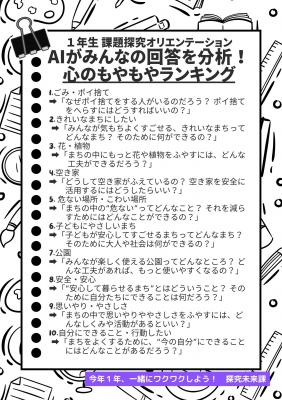 1年生 課題探究オリエンテーション
AIがみんなの回答を分析！
心のもやもやランキング
1.ごみ・ポイ捨て
➡「なぜポイ捨てをする人がいるのだろう？ ポイ捨て
をへらすにはどうすればいいの？」
2.きれいなまちにしたい
➡「みんなが気もちよくすごせる、きれいなまちって
どんなまち？ そのために何ができるの？」
3. 花・植物
➡「まちの中にもっと花や植物をふやすには、どんな
工夫ができるだろう？」
4.空き家
➡「どうして空き家がふえているの？ 空き家を安全に
活用するにはどうしたらいい？」
5. 危ない場所・こわい場所
➡「まちの中の“危ない”ってどんなこと？ それを減ら
すためにはどんなことができるの？」
6.子どもにやさしいまち
➡「子どもが安心してすごせるまちってどんなまち？
そのために大人や社会は何ができるの？」
7.公園
➡「みんなが楽しく使える公園ってどんなところ？ ど
んな工夫があれば、もっと使いやすくなるの？」
8.安全・安心
➡「“安心して暮らせるまち”とはどういうこと？ その
ために自分たちにできることは何だろう？」
9.思いやり・やさしさ
➡「まちの中で思いやりややさしさをふやすには、ど
んなしくみや活動があるといい？」
10.自分にできること・行動したい
➡「まちをよくするために、“今の自分”にできること
にはどんなことがあるだろう？」
今年１年、一緒にワクワクしよう！　探究未来課